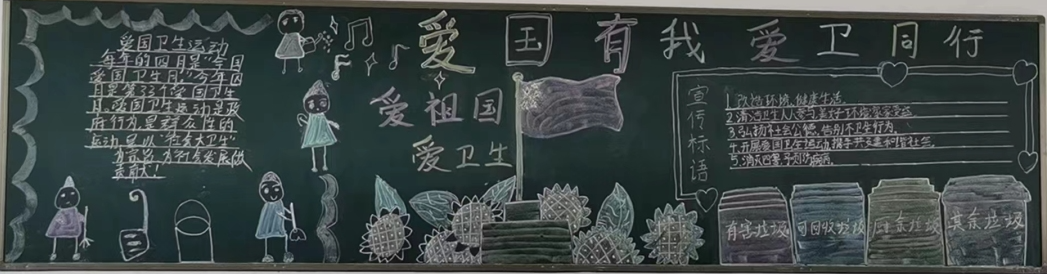 爱国有我 爱卫同行
爱祖国
爱卫生
爱国卫生运动
每年的四月是“全国
爱国卫生月”今年四
月是第33个爱国卫生
月。爱国卫生运动是政
府行为是群众性的
运动是以“社会大卫生”
贡献！
宣传标语
1.改造环境、健康生活。
2.清洁卫生人人参与,美好环境家家受益
3.弘扬社会公德,告别不卫生行为
4.开展爱国卫生运动 携手共建和谐社会
5.消灭四害 预防疾病
有害垃圾
可回收垃圾
厨余垃圾
其余垃圾